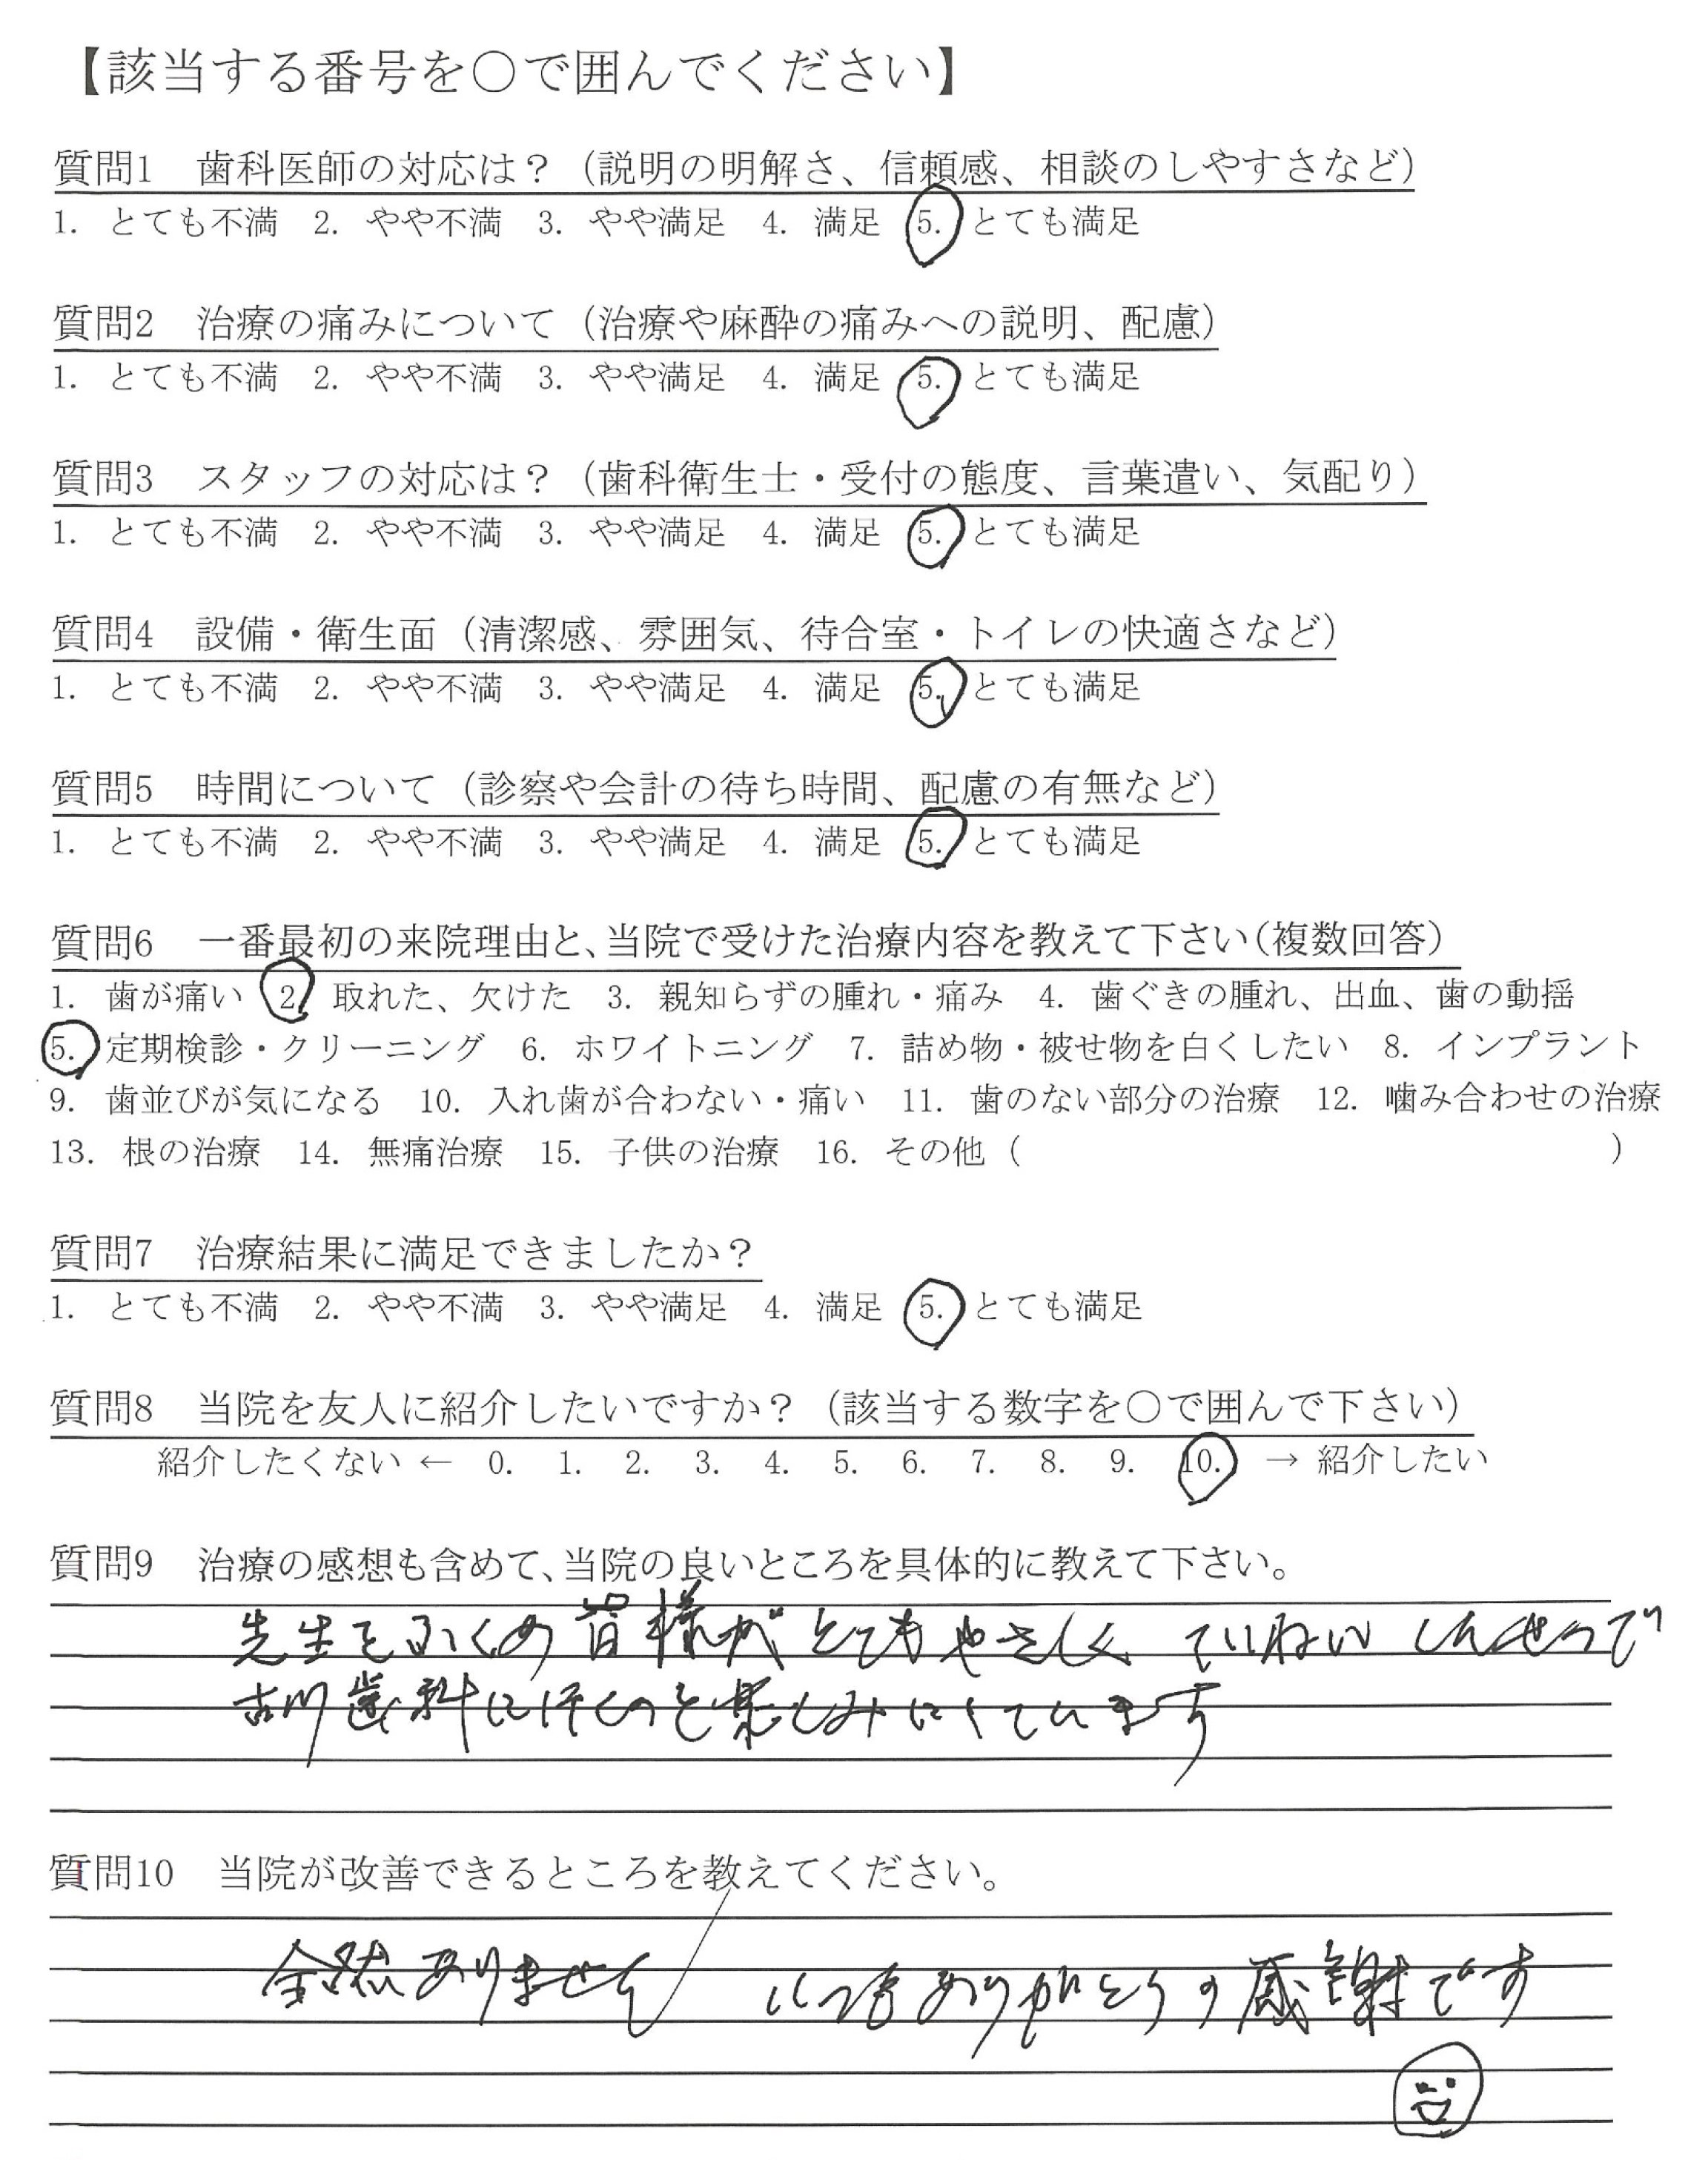 【該当する番号を○で囲んでください】
質問1　歯科医師の対応は？（説明の明解さ、信頼感、相談のしやすさなど）
1. とても不満　2. やや不満　3. やや満足　4. 満足　5. とても満足
質問2　治療の痛みについて（治療や麻酔の痛みへの説明、配慮）
1. とても不満　2. やや不満　3. やや満足　4. 満足　5. とても満足
質問3　スタッフの対応は？（歯科衛生士・受付の態度、言葉遣い、気配り）
1. とても不満　2. やや不満　3. やや満足　4. 満足　5. とても満足
質問4　設備・衛生面（清潔感、雰囲気、待合室・トイレの快適さなど）
1. とても不満　2. やや不満　3. やや満足　4. 満足　5. とても満足
質問5　時間について（診察や会計の待ち時間、配慮の有無など）
1. とても不満　2. やや不満　3. やや満足　4. 満足　5. とても満足
質問6　一番最初の来院理由と、当院で受けた治療内容を教えて下さい（複数回答）
1. 歯が痛い　2. 取れた、欠けた　3. 親知らずの腫れ・痛み　4. 歯ぐきの腫れ、出血、歯の動揺
5. 定期検診・クリーニング　6. ホワイトニング　7. 詰め物・被せ物を白くしたい　8. インプラント
9. 歯並びが気になる　10. 入れ歯が合わない・痛い　11. 歯のない部分の治療　12. 噛み合わせの治療
13. 根の治療　14. 無痛治療　15. 子供の治療　16. その他（　　　　）
質問7　治療結果に満足できましたか？
1. とても不満　2. やや不満　3. やや満足　4. 満足　5. とても満足
質問8　当院を友人に紹介したいですか？（該当する数字を○で囲んで下さい）
紹介したくない ← 0. 1. 2. 3. 4. 5. 6. 7. 8. 9. 10. → 紹介したい
質問9　治療の感想も含めて、当院の良いところを具体的に教えて下さい。
先生をふくめ皆様がとてもやさしく ていねい しんせつで
古川歯科に行くのを楽しみにしています
質問10　当院が改善できるところを教えてください。
全然ありません　いつもありがとうの感謝です